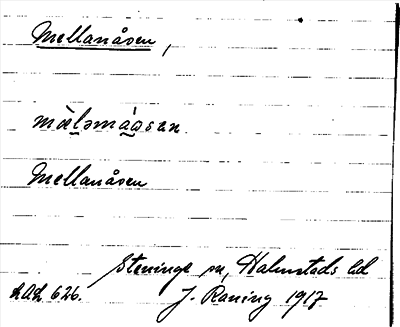 Mellanåsen,
mälsmåsen
Mellanåsen
Steninge sn, Halmstads hd
626. J. Raning 1917